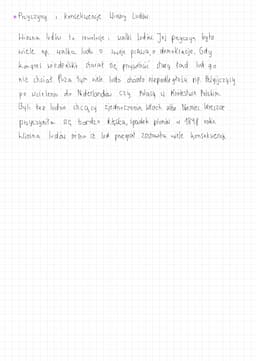 • Przyczyny i konsekwencje Wiosny Ludów
Wiosna ludów to rewolucje i walki ludów. Jej przyczyn było
wiele np. walka ludu o swoje prawa, o demokrację. Gdy
kongres wiedeński starał się przywrócić stary ład lud go
nie chciał. Poza tym wiele ludów chciało niepodległości np. Belgijczycy
po wcieleniu do Niderlandów czy Polacy w Królestwie Polskim.
Byli też ludzie chcący zjednoczenia Włoch albo Niemiec. Wreszcie
przyczyniła się bardzo klęska, spadek plonów w 1848 roku.
Wiosna ludów mimo iż lud przegrał zostawiła wiele konsekwencji.